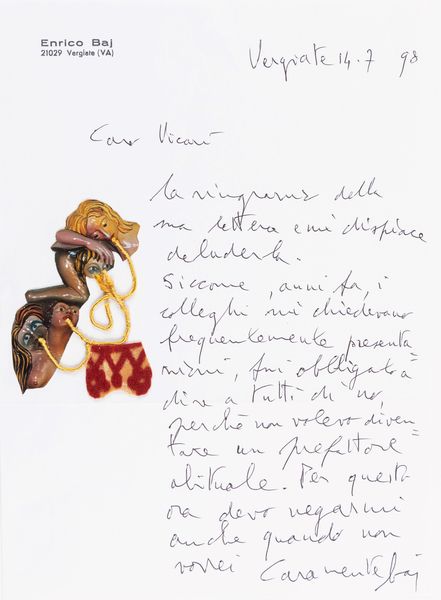 Enrico Baj
21029 Vergiate (VA)
Vergiate 14.7 98
Caro Vicari
la ringrazio della
sua lettera e mi dispiace
deluderla.
Siccome, anni fa, i
colleghi mi chiedevano
frequentemente presenta=
zioni, fui obbligato a
dire a tutti di no,
perché non volevo diven=
tare un prefattore
abituale. Per questo
ora devo negarmi
anche quando non
vorrei Caramente Baj